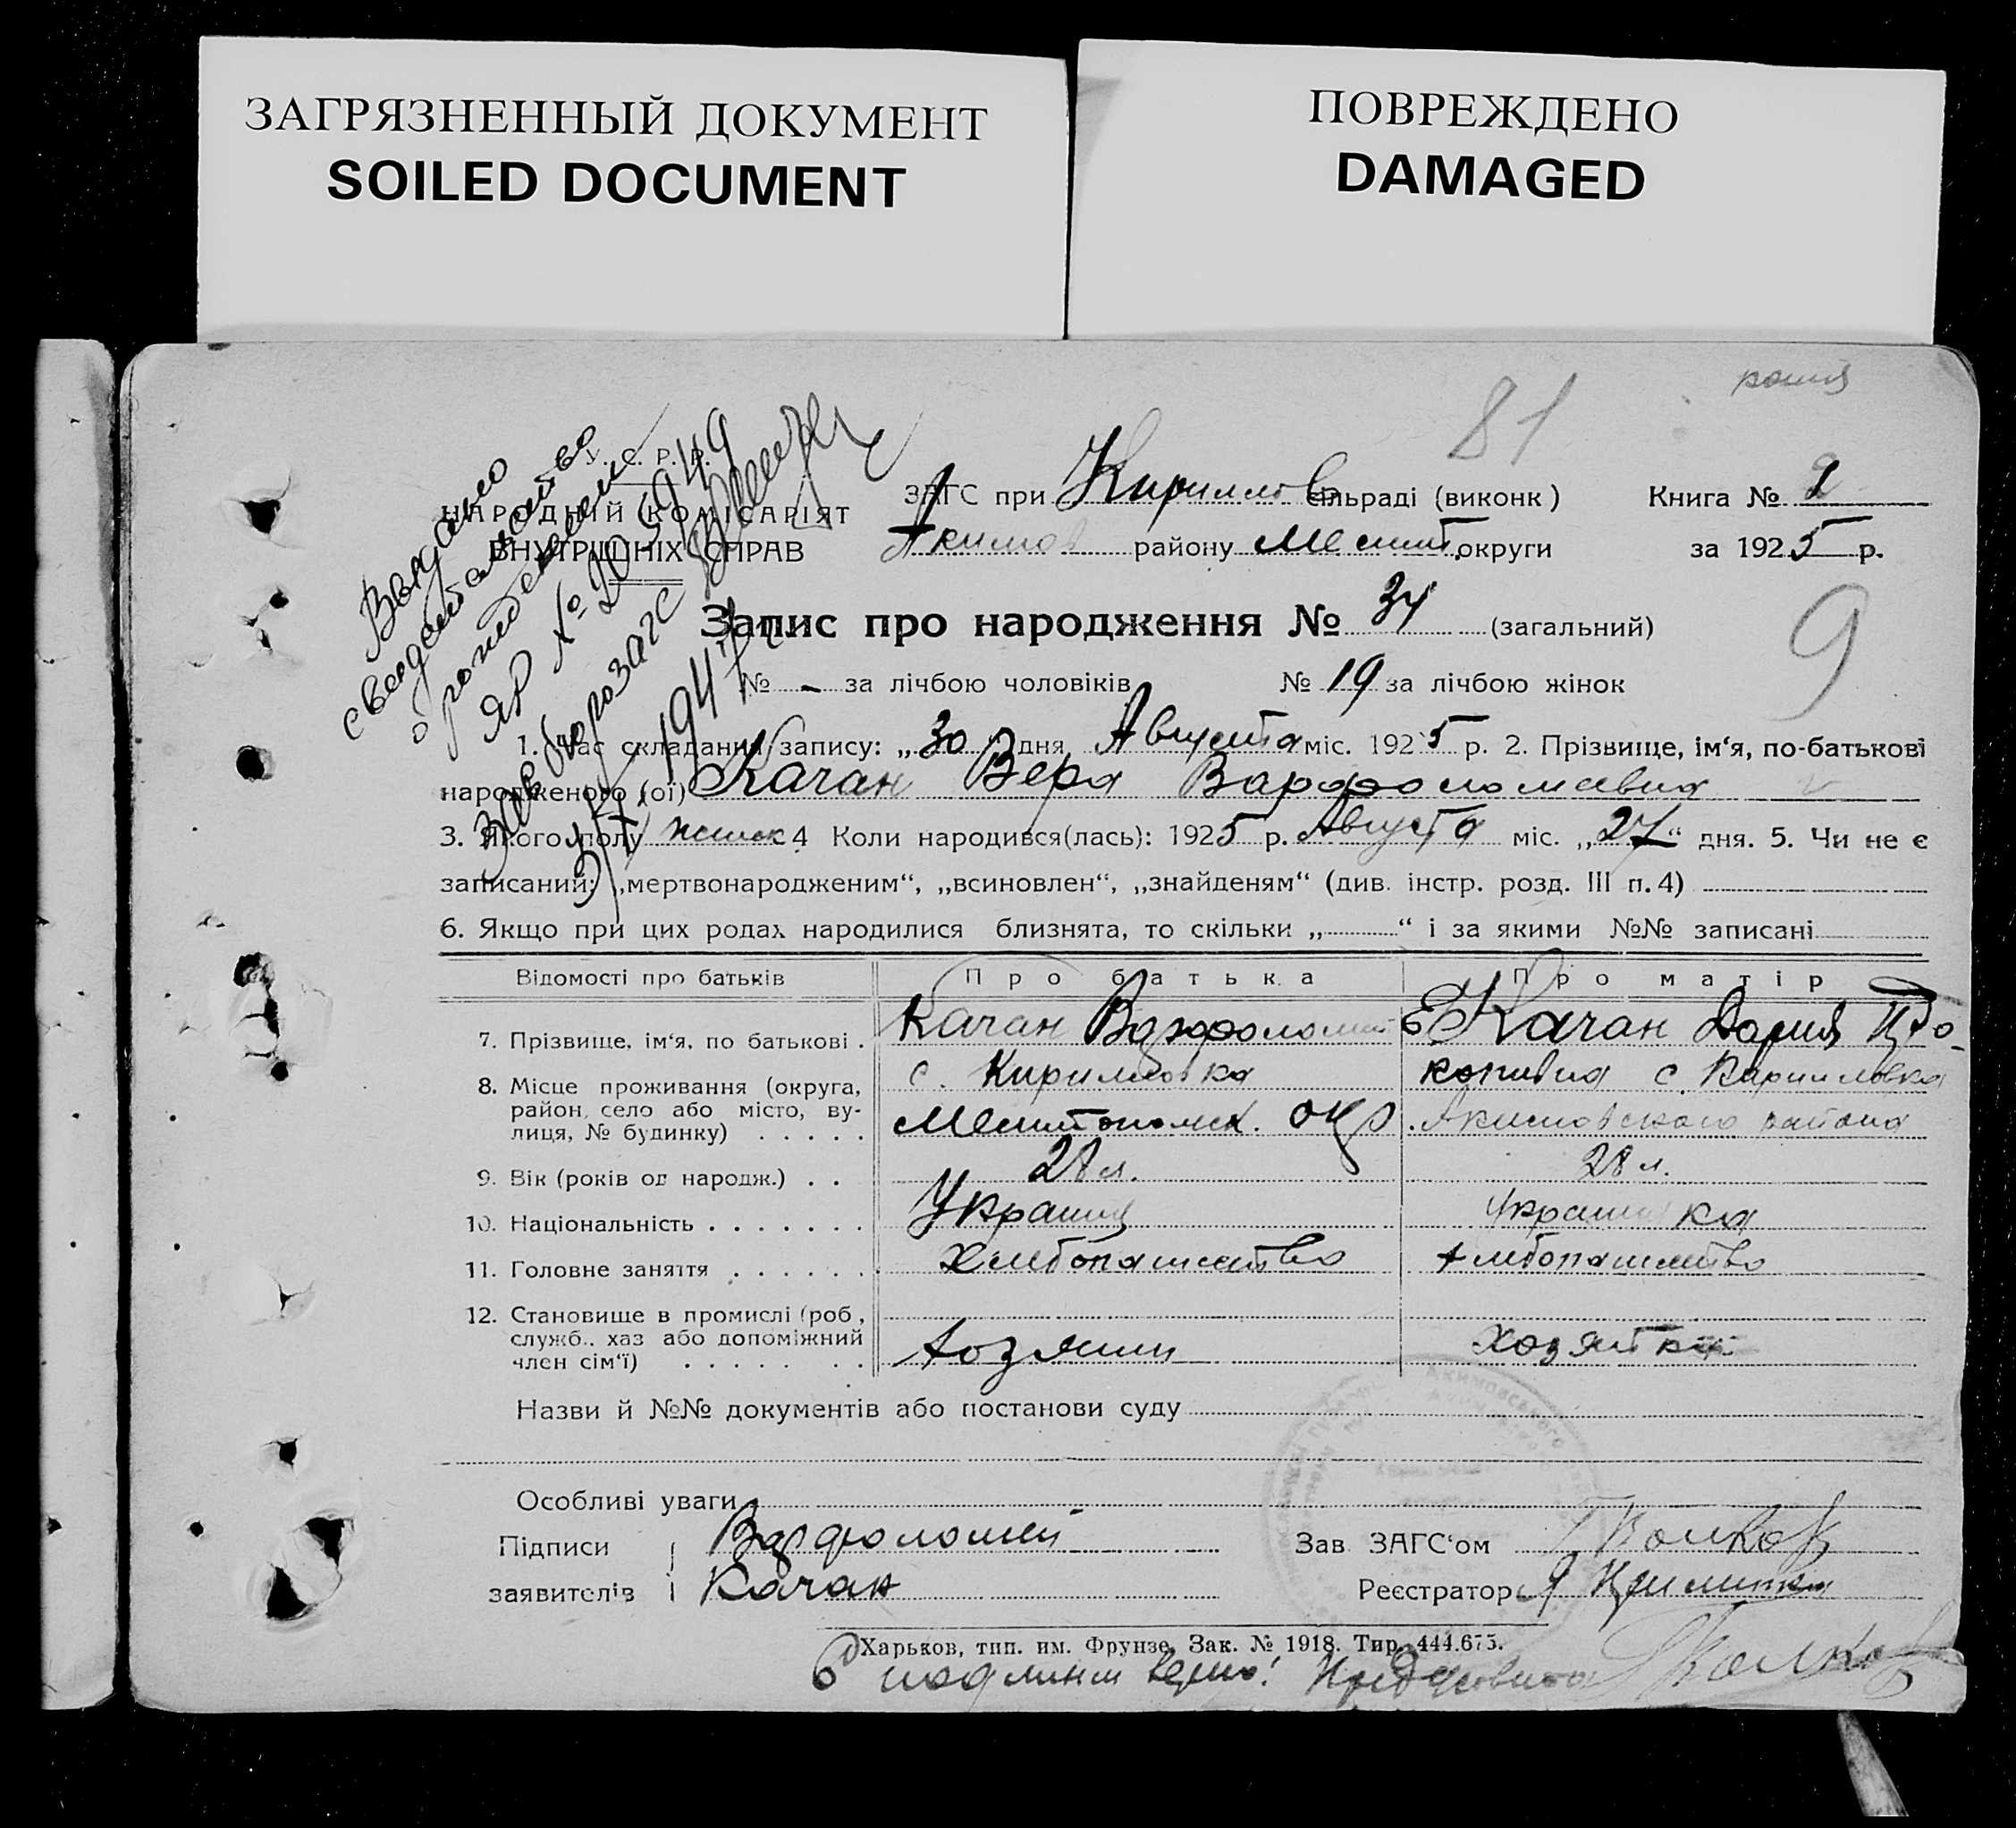 ЗАГРЯЗНЕННЫЙ ДОКУМЕНТ
SOILED DOCUMENT
ПОВРЕЖДЕНО
DAMAGED
81
У. С. Р. Р.
НАРОДНИЙ КОМІСАРІЯТ
ВНУТРІШНІХ СПРАВ
Выдано
свидетельство
о рождении
ЯР №
ЗАГС при Кириллов сільраді (виконк) Книга № 1
Акимов району Мелит. округи за 1925 р.
Запис про народження № 34 (загальний)
9
№ - за лічбою чоловіків № 19 за лічбою жінок
1. Час складання запису: „30" дня Августа міс. 1925 р. 2. Прізвище, ім'я, по-батькові
народженого (ої) Качан Вера Варфоломеевна
3. Якого полу женск 4 Коли народився(лась): 1925 р. Августа міс. „27" дня. 5. Чи не є
записаний: „мертвонародженим", „всиновлен", „знайденям" (див. інстр. розд. III п. 4)
6. Якщо при цих родах народилися близнята, то скільки „ " і за якими №№ записані
Відомості про батьків Про батька Про матір
7. Прізвище, ім'я, по батькові . Качан Варфоломей Качан Дария Про-
8. Місце проживання (округа, с. Кирилловка копивна с Кирилловка
район, село або місто, ву-
лиця, № будинку) . . . . . Мелитопольск. окр. Акимовского района
9. Вік (років од народж.) . . 28 л. 28 л.
10. Національність . . . . . . . Украинец Украинка
11. Головне заняття . . . . . . . Хлебопашество Хлебопашество
12. Становище в промислі (роб.,
служб., хаз або допоміжний
член сім'ї) . . . . . . . Хозяин Хозяйка
Назви й №№ документів або постанови суду
Особливі уваги
Підписи Варфоломей Зав. ЗАГС'ом Волков
заявителів Качан Реєстратор
Харьков, тип. им. Фрунзе. Зак. № 1918. Тир. 444.675.
С подлинным верно!